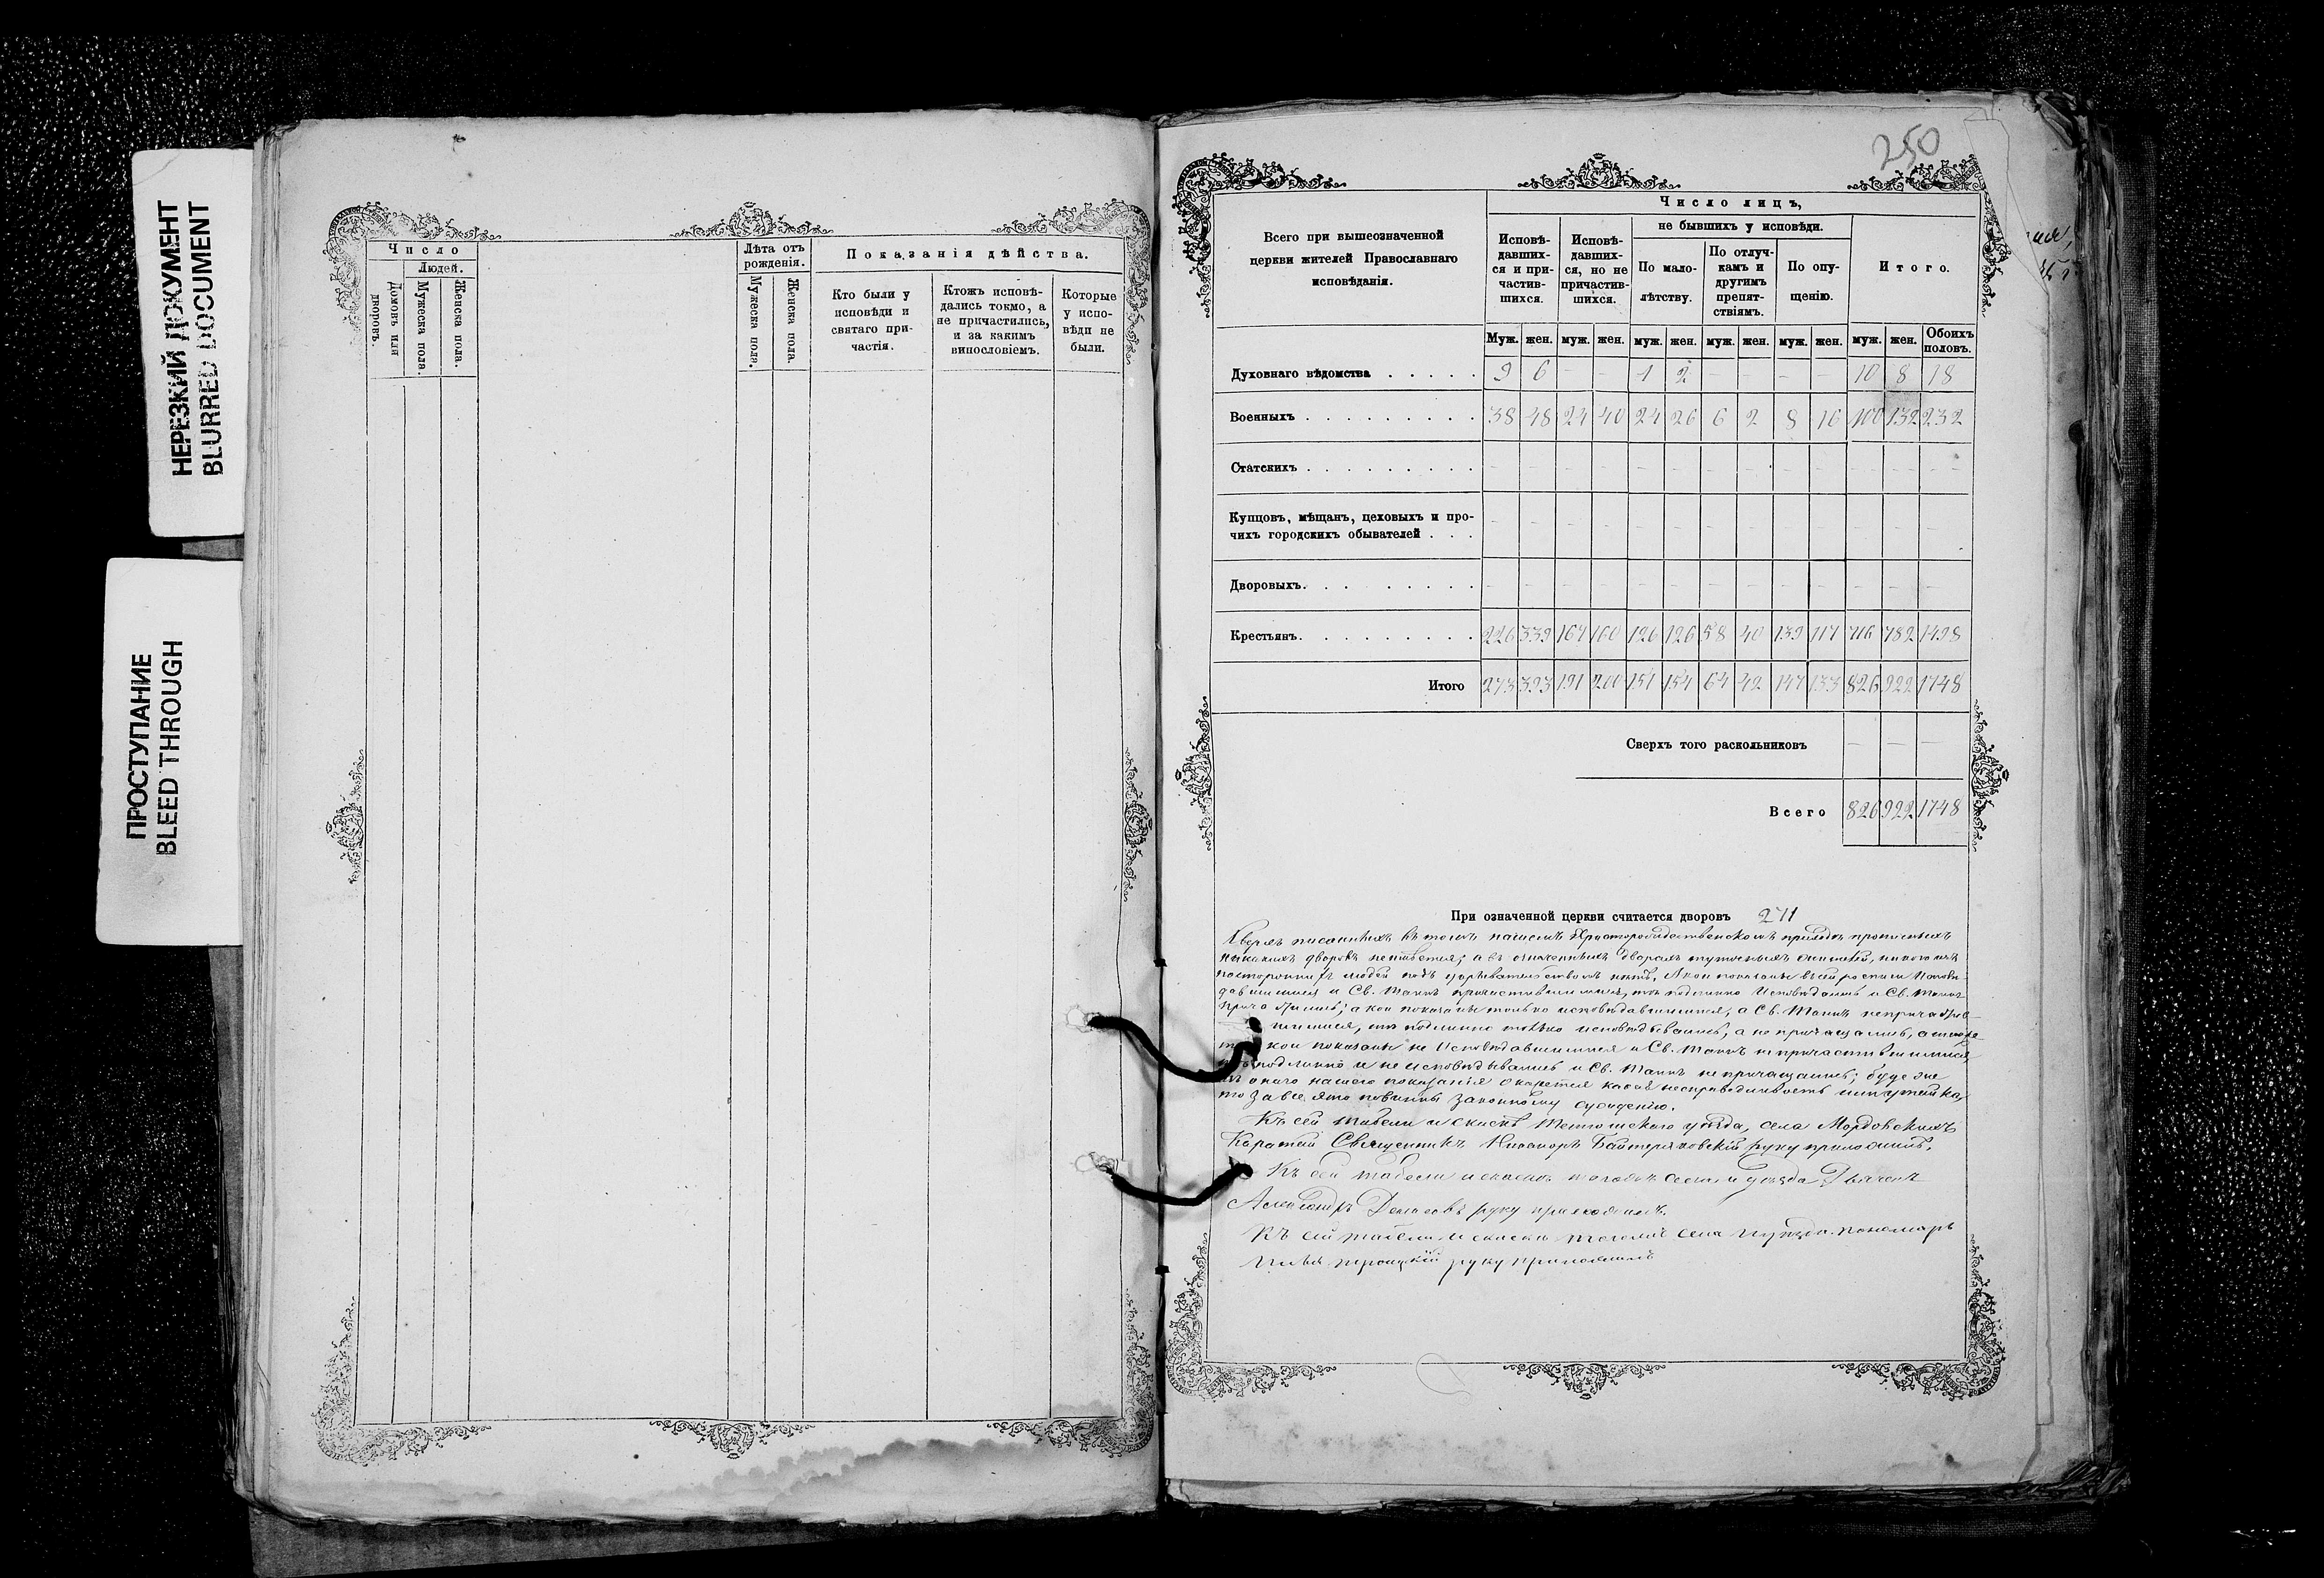 НЕРЕЗКИЙ ДОКУМЕНТ
BLURRED DOCUMENT
ПРОСТУПАНИЕ
BLEED THROUGH
Число
Домовъ или дворовъ.
Людей.
Мужеска пола.
Женска пола.
Лѣта отъ рожденія.
Мужеска пола.
Женска пола.
Показанія дѣйства.
Кто были у исповѣди и святаго причастія.
Ктожъ исповѣдались токмо, а не причастились, и за какимъ винословіемъ.
Которые у исповѣди не были.
250
Всего при вышеозначенной
церкви жителей Православнаго
исповѣданія.
Число лицъ,
Исповѣдавшихся и причастившихся.
Исповѣдавшихся, но не причастившихся.
не бывшихъ у исповѣди.
По малолѣтству.
По отлучкамъ и другимъ препятствіямъ.
По опущенію.
Итого.
Муж. жен. муж. жен. муж. жен. муж. жен. муж. жен. муж. жен. Обоихъ половъ.
Духовнаго вѣдомства . . . . . 9 6 – – 1 2 – – – – 10 8 18
Военныхъ . . . . . . . . . 38 48 24 40 24 26 6 2 8 16 100 132 232
Статскихъ . . . . . . . . . – – – – – – – – – – – – –
Купцовъ, мѣщанъ, цеховыхъ и про-
чихъ городскихъ обывателей . . . – – – – – – – – – – – – –
Дворовыхъ. . . . . . . . . – – – – – – – – – – – – –
Крестьянъ. . . . . . . . . 226 339 167 160 126 126 58 40 139 117 716 782 1498
Итого 273 393 191 200 151 154 64 42 147 133 826 922 1748
Сверхъ того раскольниковъ – – –
Всего 826 922 1748
При означенной церкви считается дворовъ 271
писанныхъ въ Христорождественскомъ приходѣ
никакихъ дворовъ неимѣется; а въ означенныхъ дворахъ
постороннихъ людей нѣтъ. А кои показаны въ сей росписи Исповѣ-
давшимися и Св. Таинъ причастившимися, тѣ подлинно Исповѣдались и Св. Таинъ
а кои показаны только исповѣдавшимися, а Св. Таинъ
шимися, тѣ подлинно только исповѣдывались, а не причащались,
кои показаны не Исповѣдавшимися и Св. Таинъ непричастившимися,
подлинно и не исповѣдывались и Св. Таинъ не причащались; буде же
нашего показанія окажется какая несправедливость или утайка,
то за все это повинны законному сужденію.
Къ сей табели и Тетюшскаго уѣзда, села Мордовскихъ
Каратай Священникъ Никаноръ руку приложилъ.
Къ сей табели и села и уѣзда
Александръ руку приложилъ.
Къ сей табели и села и уѣзда пономарь
руку приложилъ